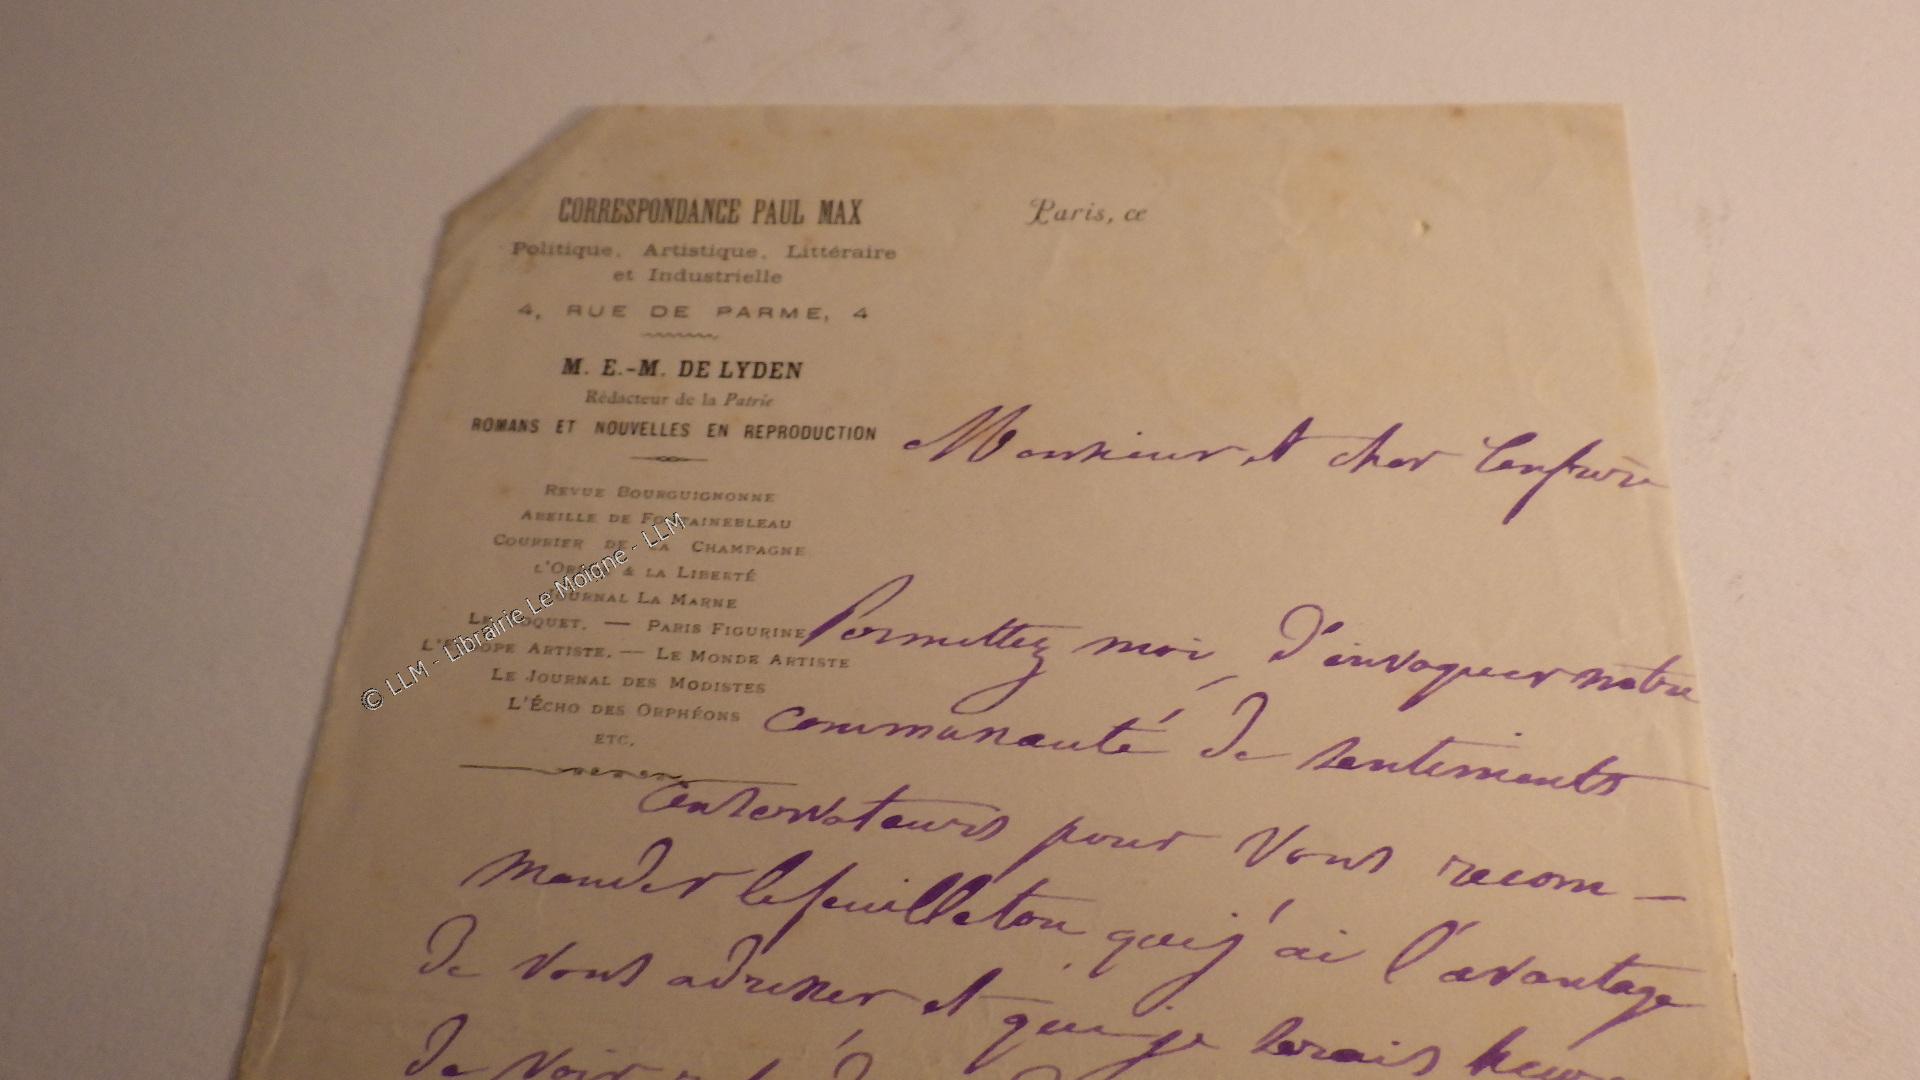 CORRESPONDANCE PAUL MAX
Politique, Artistique, Littéraire
et Industrielle
4, RUE DE PARME, 4
Paris, ce
M. E.-M. DE LYDEN
Rédacteur de la Patrie
ROMANS ET NOUVELLES EN REPRODUCTION
REVUE BOURGUIGNONNE
ABEILLE DE FONTAINEBLEAU
COURRIER DE LA CHAMPAGNE
L'ORDRE & LA LIBERTÉ
JOURNAL LA MARNE
— PARIS FIGURINE
L'EUROPE ARTISTE. — LE MONDE ARTISTE
LE JOURNAL DES MODISTES
L'ÉCHO DES ORPHÉONS
ETC.
Monsieur et cher Confrère
Permettez moi, d'invoquer notre
communauté de sentiments
Conservateurs pour vous recom—
mander le feuilleton que j'ai l'avantage
de vous adresser et que je serais heure
de voir
© LLM - Librairie Le Moigne - LLM